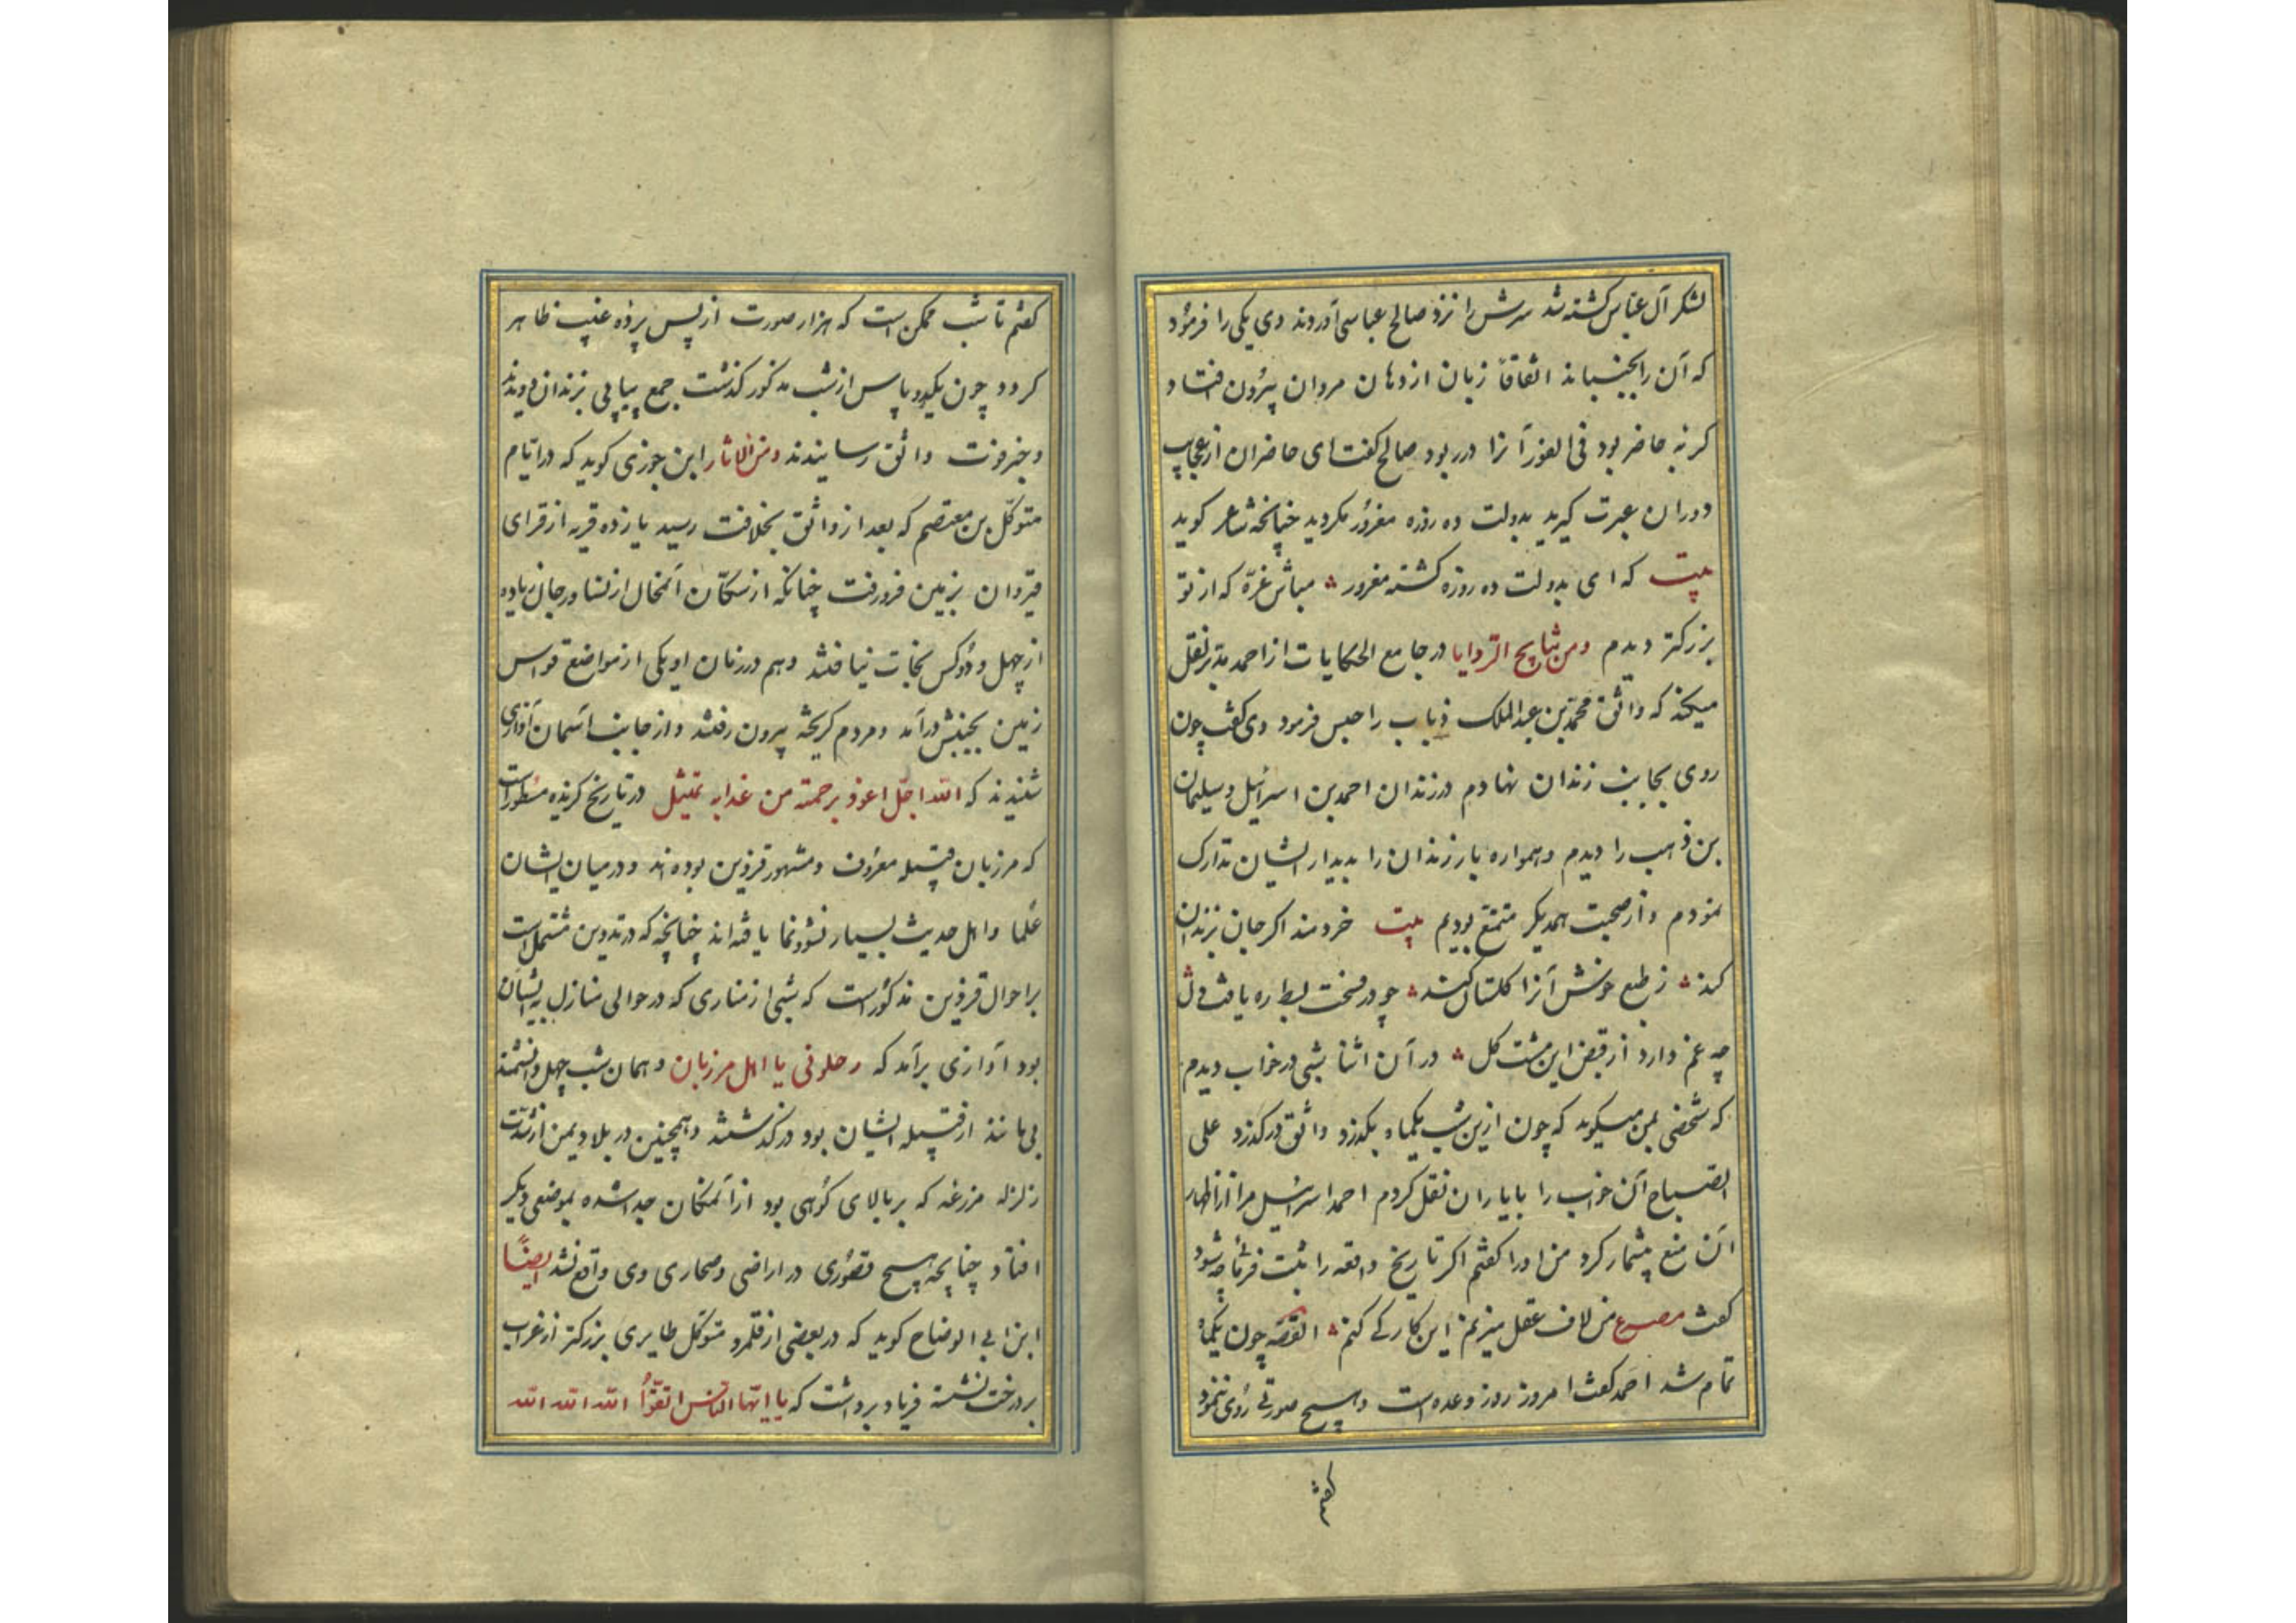 لشکر آل عباس کشته شد سرش را نزد صالح عباسی آوردند وی یکی را فرمود
که آن را بجنباند اتفاقاً زبان از دهان مروان بیرون افتاد و
کربه حاضر بود فی الفور آنرا در ربود صالح کفت ای حاضران از عجایب
دوران عبرت کیرید بدولت ده روزه مغرور مکردید چنانچه شاعر کوید
بیت که ای بدولت ده روزه کشته مغرور مباش غرّه که از تو
بزرکتر دیدم ومن نتایج الروایا در جامع الحکایات از احمد مدبر نقل
میکند که واثق محمد بن عبد الملک زیاب را حبس فرمود وی کفت چون
روی بجانب زندان نهادم در زندان احمد بن اسرائیل و سلیمان
بن ذهب را دیدم و همواره بار زندان را بدیدار ایشان تدارک
نمودم و از صحبت همدیکر متمتع بودیم بیت خردمند اکر جان بزندان
کند ز طبع خوش آنرا کلستان کند چو در فسحت بسط ره یافت دل
چه غم دارد از قبض این مشت کل در آن اثنا شبی در خواب دیدم
که شخصی بمن میکوید که چون ازین شب یکماه بکذرد واثق درکذرد علی
الصباح آن خواب را با یاران نقل کردم احمد اسرائیل مرا از اظهار
آن منع بیشمار کرد من او را کفتم اکر تاریخ واقعه را ثبت فرمائی چه شود
کفت مصرع من لاف عقل میزنم این کار کی کنم القصه چون یکماه
تمام شد احمد کفت امروز روز وعده است و هیچ صورتی روی ننمود
کفتم
کفتم تا شب ممکن است که هزار صورت از پس پرده غیب ظاهر
کردد چون یکدو پاس از شب مذکور کذشت جمع پیاپی بزندان دویدند
و خبر فوت واثق رسانیدند ومن الاثار ابن جوزی کوید که در ایام
متوکل بن معتصم که بعد از واثق بخلافت رسید یازده قریه از قرای
قیروان بزمین فرو رفت چنانکه از سکّان آنمحال از نسا و رجال زیاده
از چهل و دو کس نجات نیافتند و هم در زمان او یکی از مواضع قواس
زمین بجنبش درآمد و مردم کریخته بیرون رفتند و از جانب آسمان آوازی
شنیدند که الله اجلّ اعوذ برحمته من عذابه تمثیل در تاریخ کزیده مسطور است
که مرزبان قبیله معروف و مشهور قزوین بوده اند و در میان ایشان
علما و اهل حدیث بسیار نشو و نما یافته اند چنانچه که در تدوین مشتمل است
بر احوال قزوین مذکور است که شبی از مناری که در حوالی منازل ایشان
بود آوازی برآمد که رحلونی یا اهل مرزبان و همان شب چهل دانشمند
بی مانند از قبیله ایشان بود درکذشتند و همچنین در بلاد یمن از شدّت
زلزله مزرعه که بر بالای کوهی بود از آنمکان جدا شده بموضعی دیکر
افتاد چنانچه هیچ قصوری در اراضی و صحاری وی واقع نشد ایضًا
ابن ابی الوضاح کوید که در بعضی از قلمرو متوکل طایری بزرکتر از غراب
بر درخت نشسته فریاد برداشت که یا ایّها الناس اتقوا الله الله الله